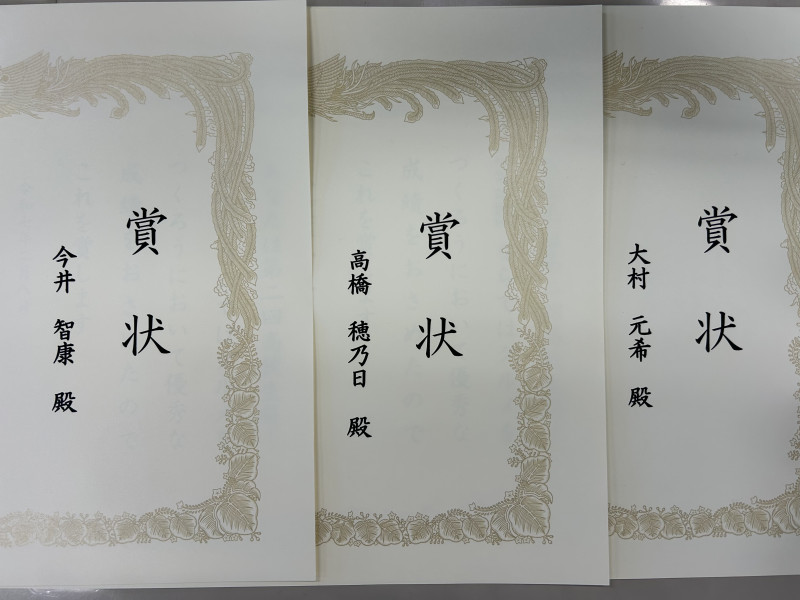 賞状
大村 元希 殿
賞状
高橋 穂乃日 殿
賞状
今井 智康 殿